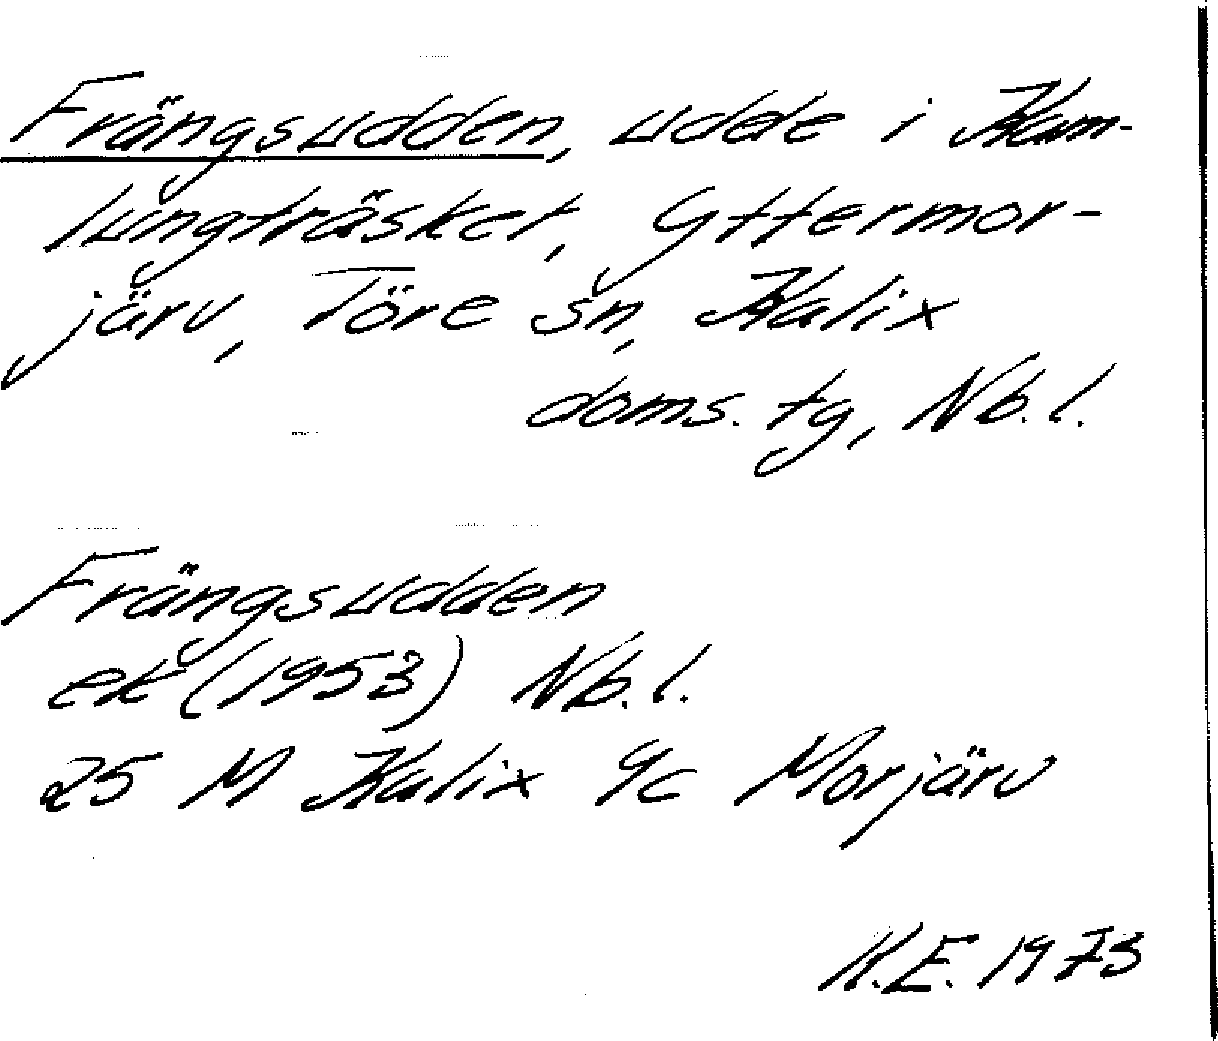 Frängsudden, udde i Kam-
lungträsket, Yttermor-
järv, Töre sn, Kalix
doms. tg, Nb. l.
Frängsudden
ek (1953) Nb. l.
25 M Kalix 9c Morjärv
K.E. 1973